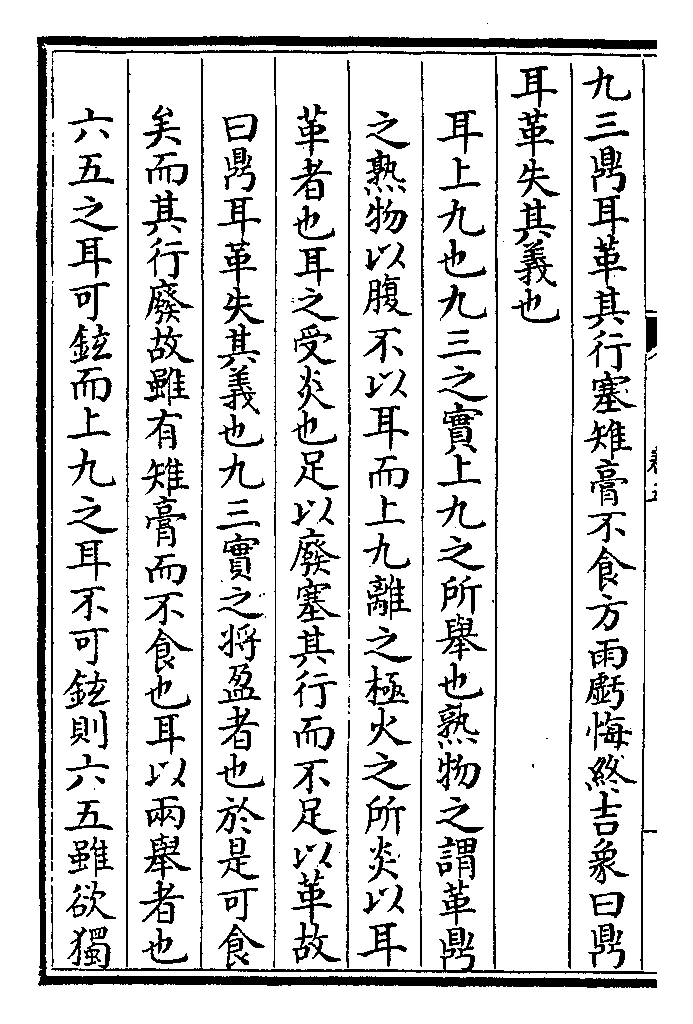 九三鼎耳革其行塞雉膏不食方雨虧悔終吉象曰鼎
耳革失其義也
耳上九也九三之實上九之所舉也熟物之謂革鼎
之熟物以腹不以耳而上九離之極火之所炎以耳
革者也耳之受炎也足以廢塞其行而不足以革故
曰鼎耳革失其義也九三實之將盈者也於是可食
矣而其行廢故雖有雉膏而不食也耳以兩舉者也
六五之耳可鉉而上九之耳不可鉉則六五雖欲獨